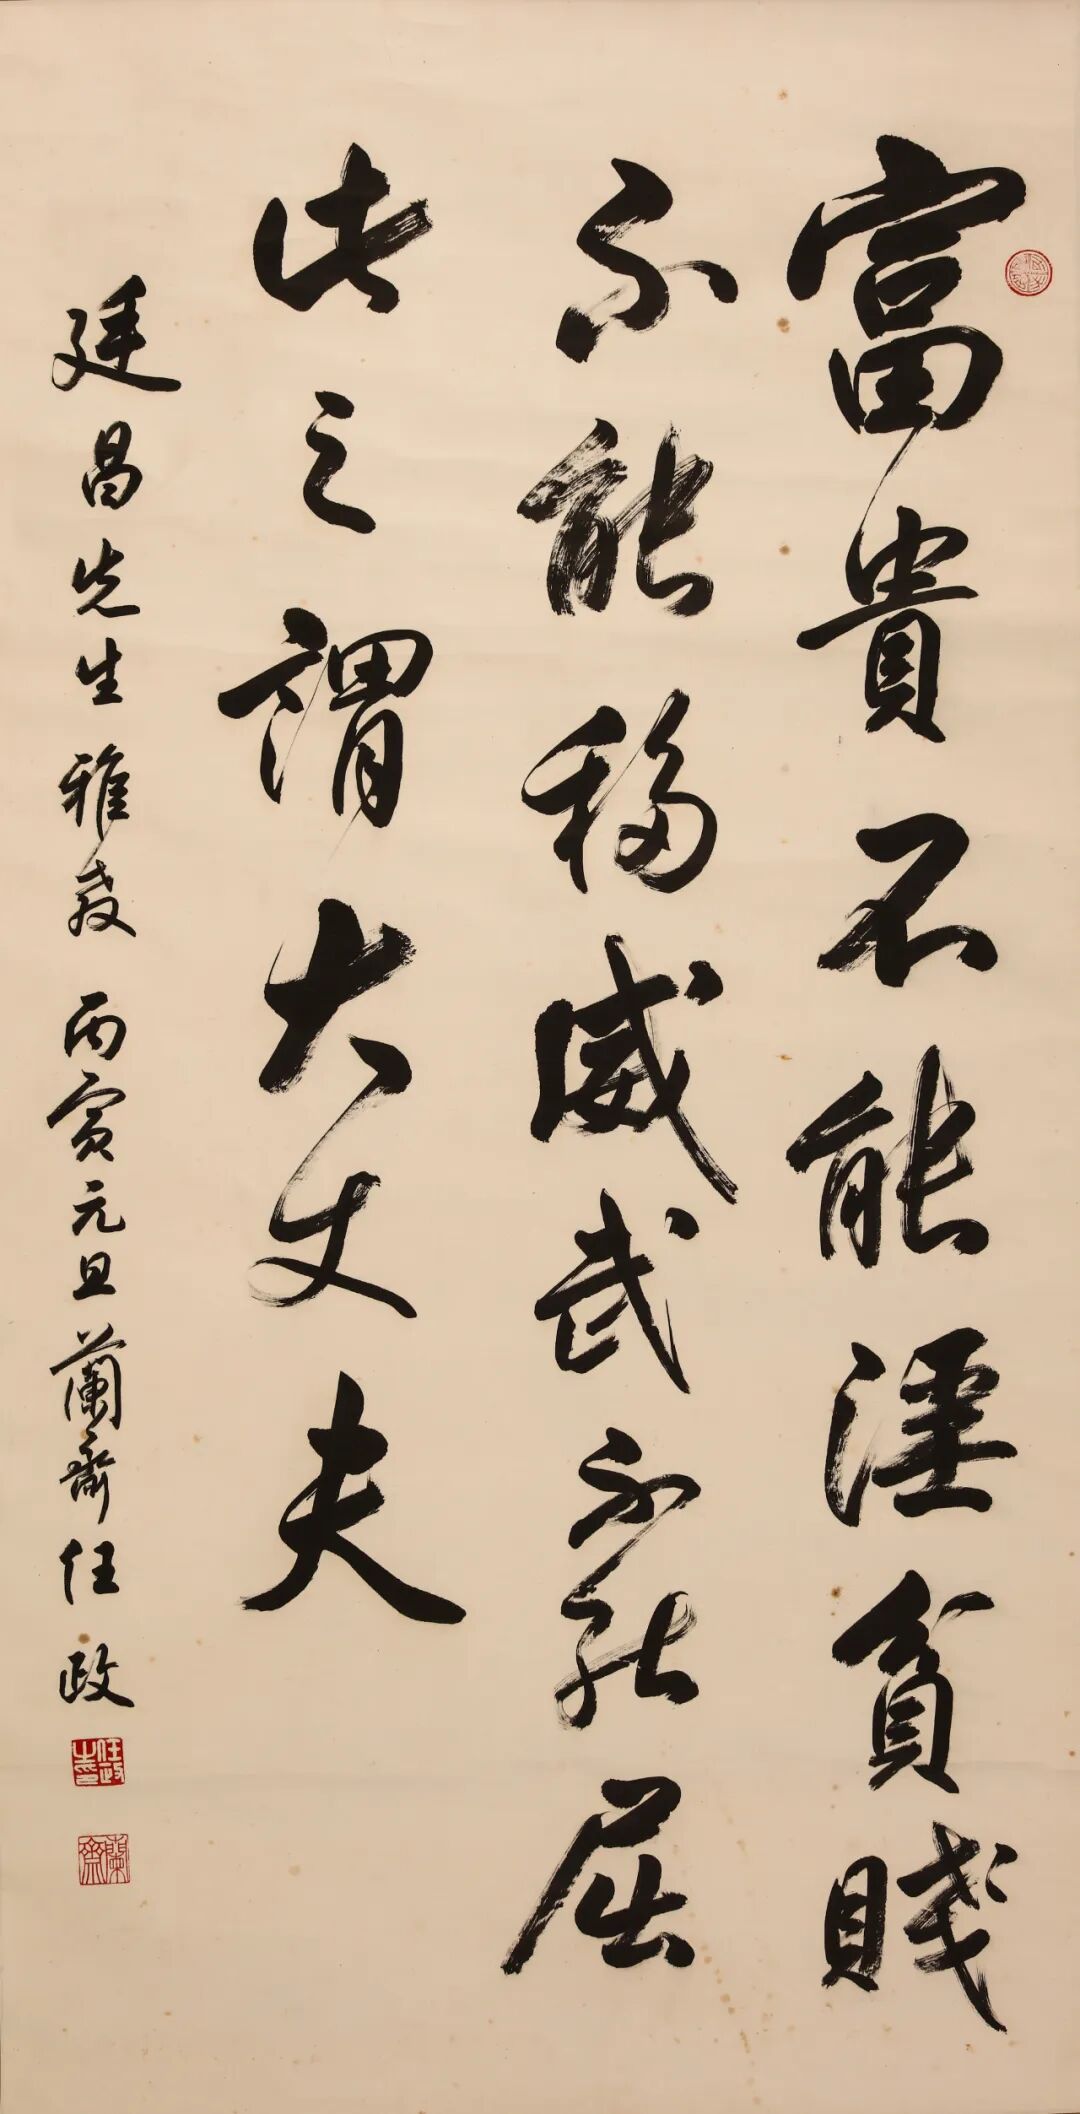 富貴不能淫貧賤
不能移威武不能屈
此之謂大丈夫
廷昌先生雅教 丙寅元旦蘭齋任政
任政之印
蘭齋